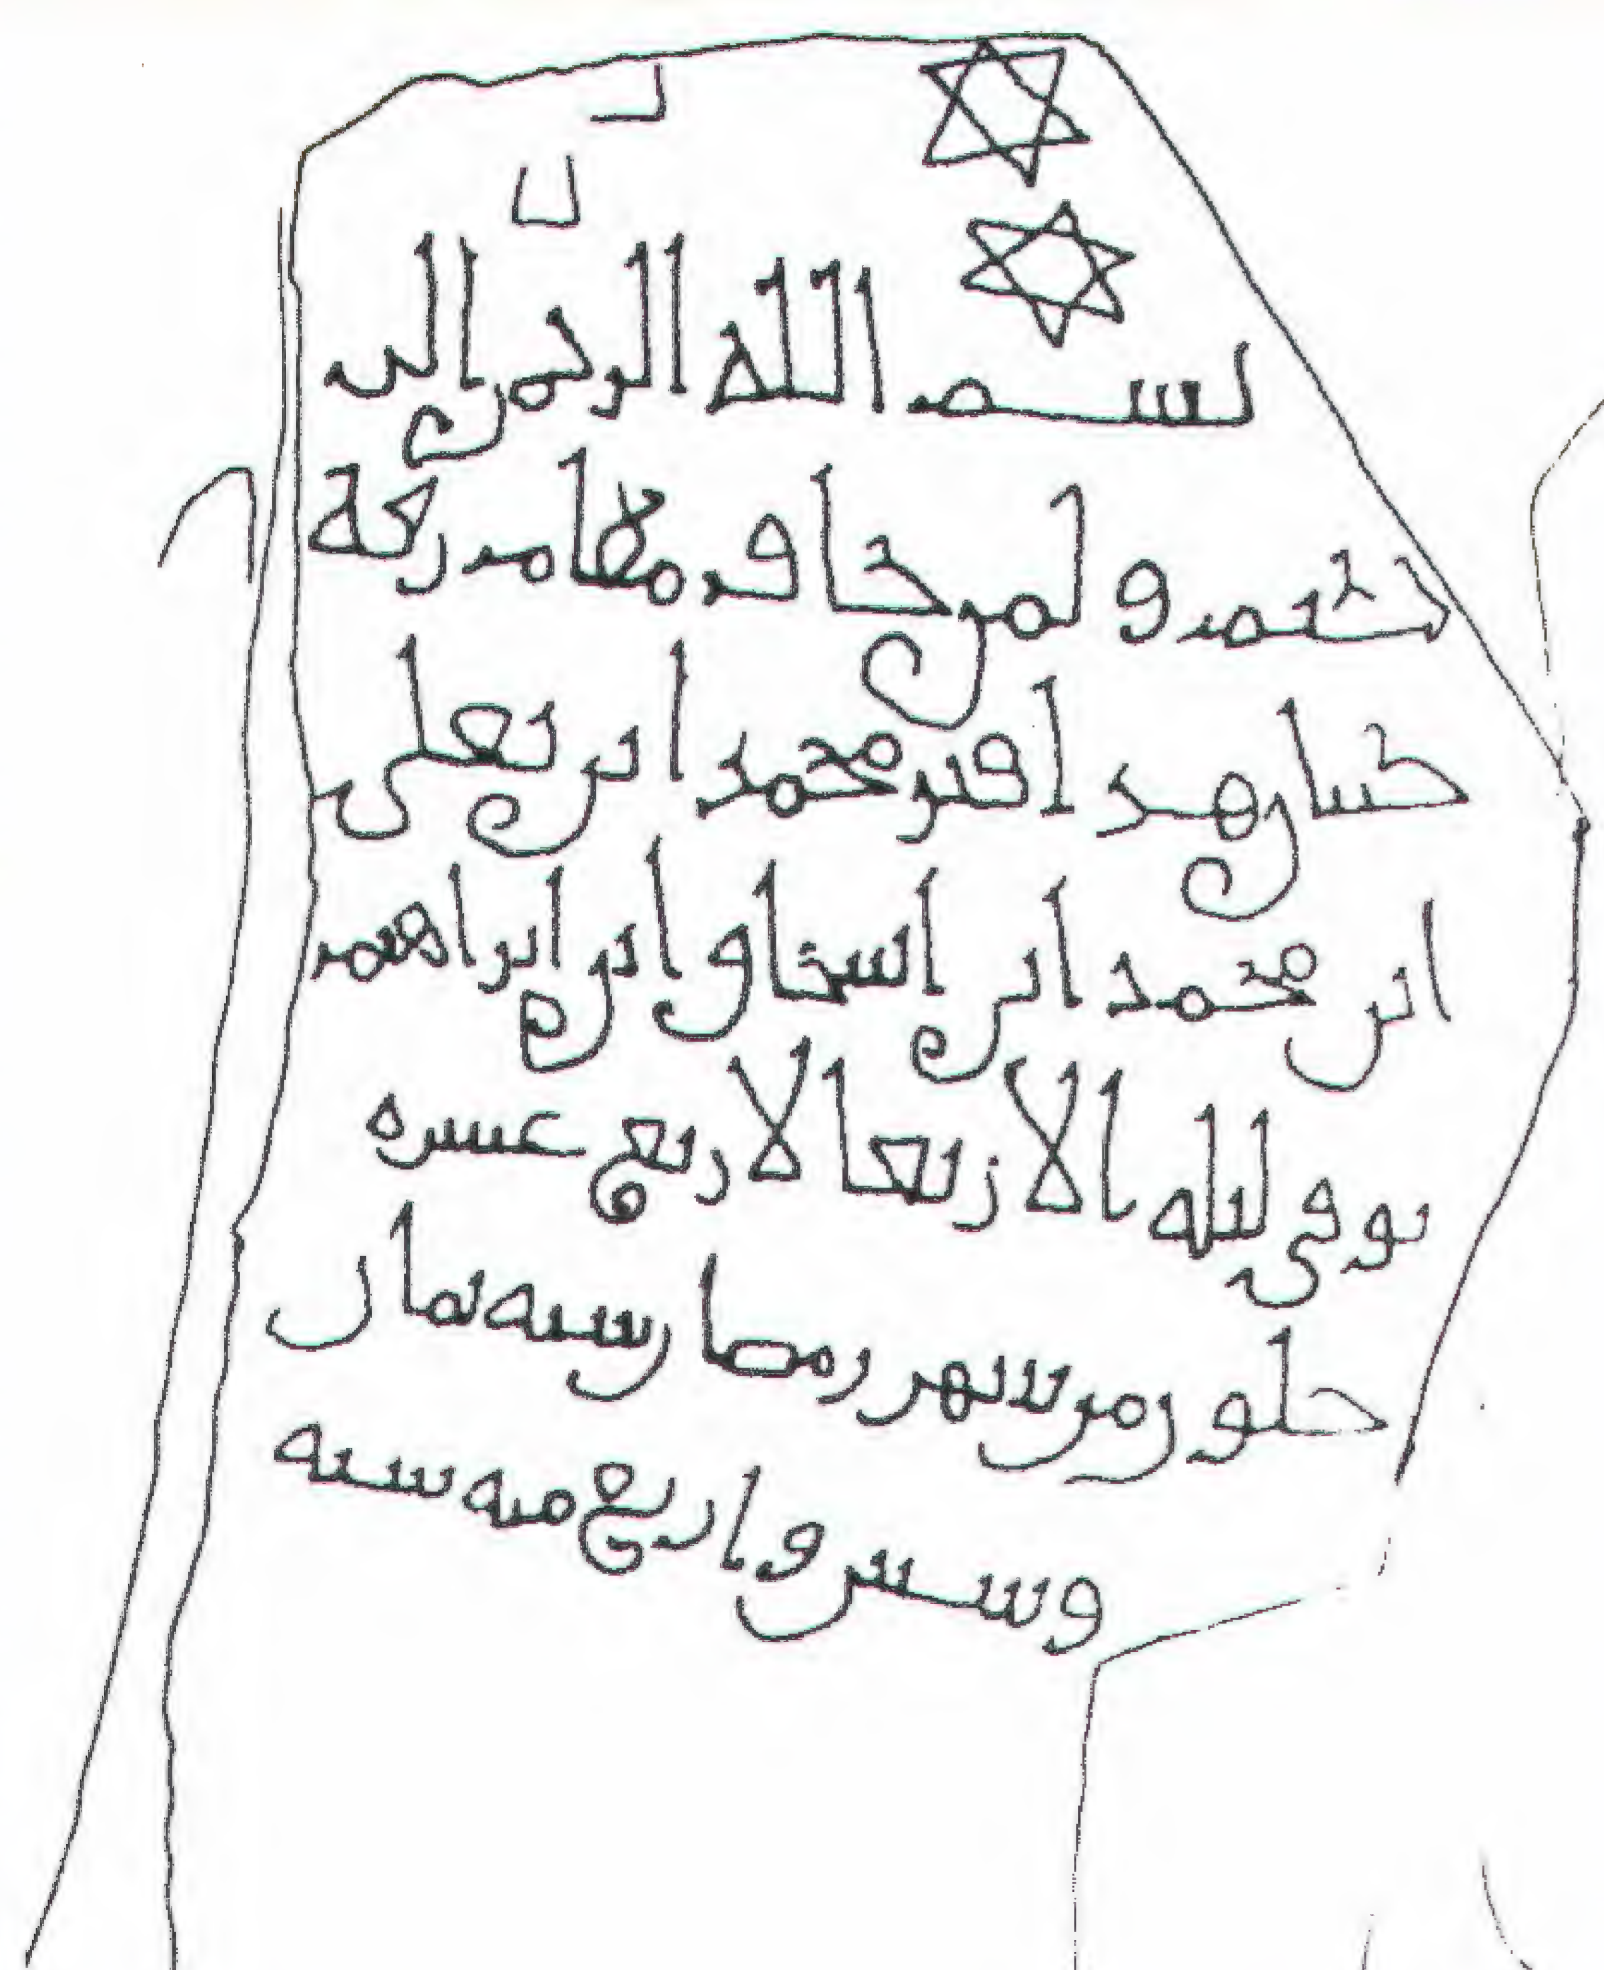 بسم الله الرحمن الر
حيم ولمن خاف مقام ربه
جنتان هذا قبر محمد ابن يعلى
ابن محمد ابن اسحاق ابن ابراهيم
توفى ليله الاربعا لاربع عشره
خلون من شهر رمضان سنه ثمان
وستين واربع مئه سنه